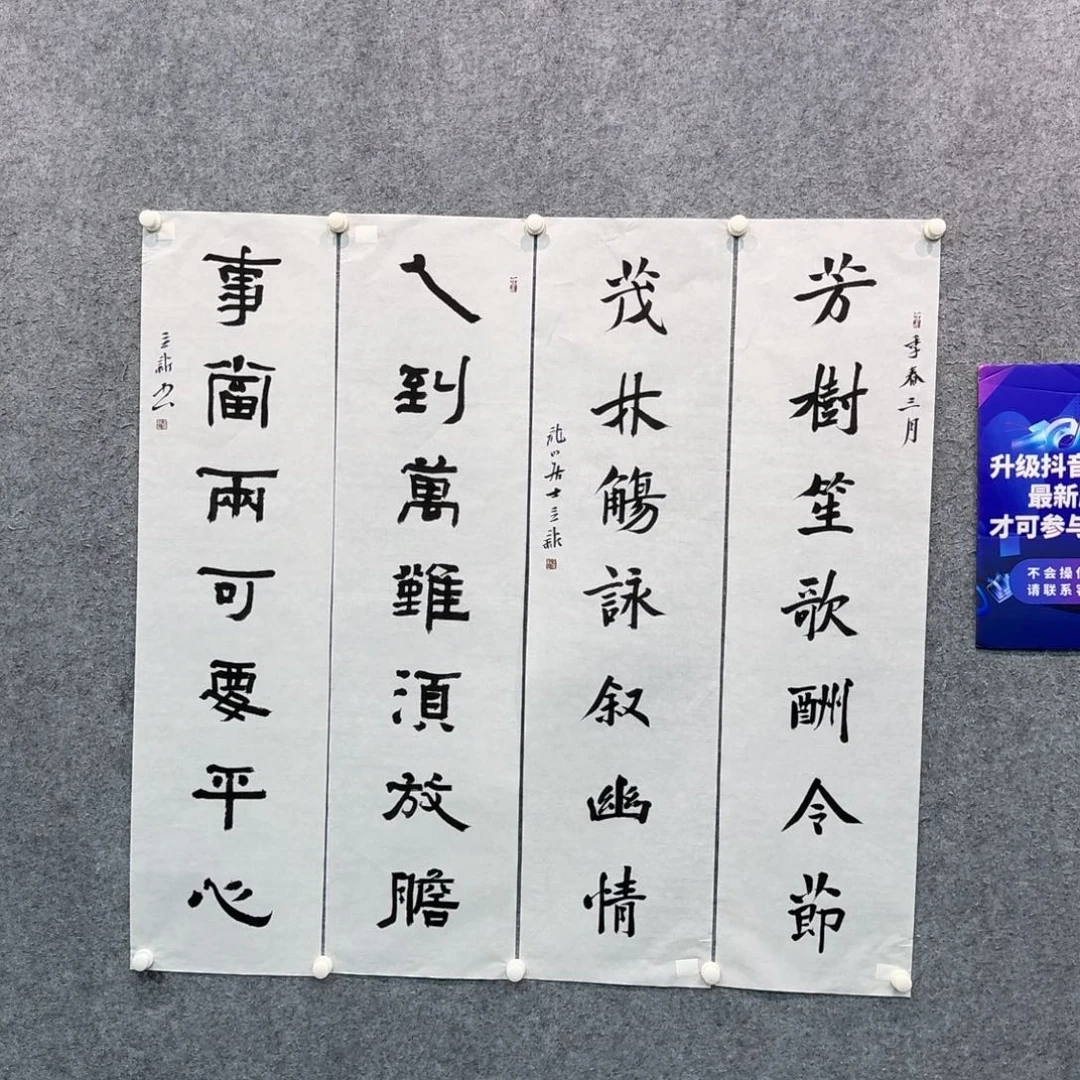 季春三月
芳樹笙歌酬令節
茂林觴詠叙幽情
居士立
人到萬難湏放膽
事當兩可要平心
立
升级抖音
最新
才可参与
不会操作
请联系客